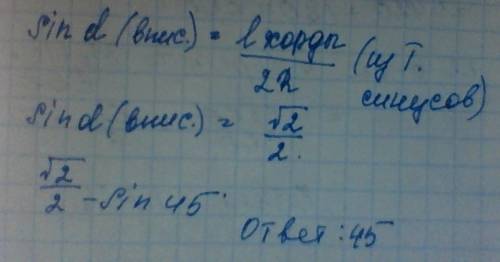 sin d (впис.) = l хорды / 2R (из т. синусов)
sin d (впис.) = √2 / 2.
√2 / 2 – sin 45°
Ответ: 45